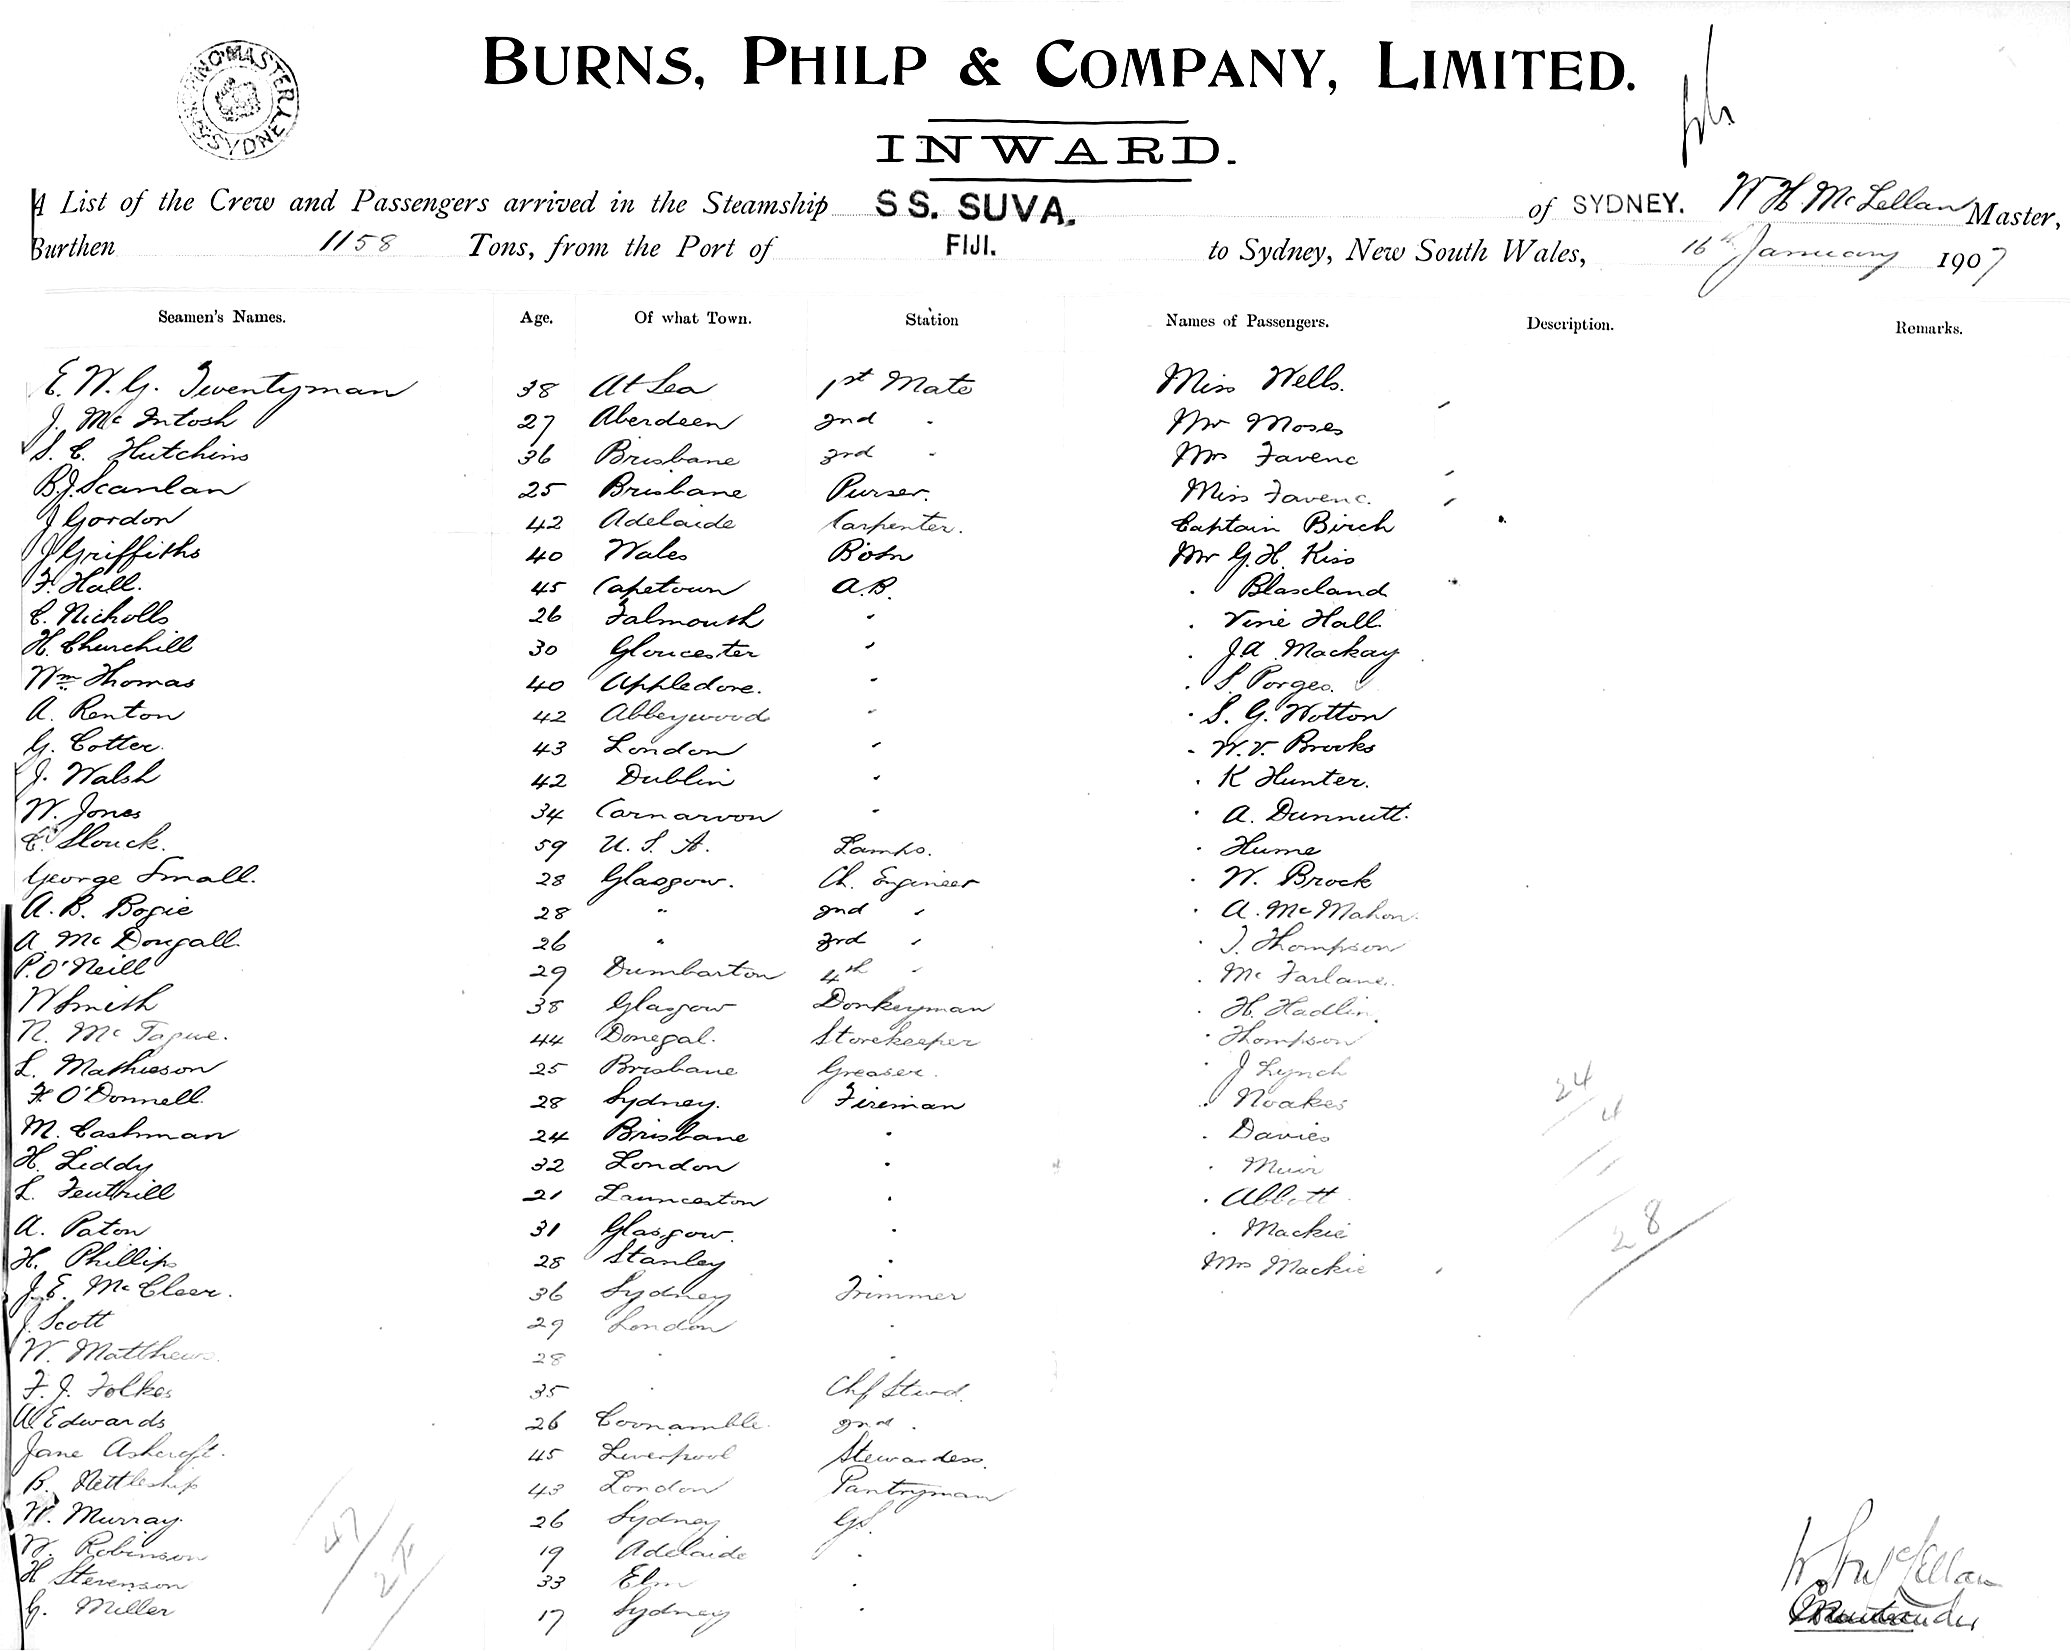 SHIPPING MASTER SYDNEY
BURNS, PHILP & COMPANY, LIMITED.
INWARD.
A List of the Crew and Passengers arrived in the Steamship SS. SUVA. of SYDNEY. W H McLellan Master,
Burthen 1158 Tons, from the Port of FIJI. to Sydney, New South Wales, 16th January 1907
Seamen's Names. Age. Of what Town. Station Names of Passengers. Description. Remarks.
E. W. G. Twentyman 38 At Sea 1st Mate Miss Wells.
J. McIntosh 27 Aberdeen 2nd " Mr Moses
S. C. Hutchins 36 Brisbane 3rd " Mrs Favenc
B.J. Scanlan 25 Brisbane Purser. Miss Favenc.
J Gordon 42 Adelaide Carpenter. Captain Birch
J Griffiths 40 Wales Bosn Mr G. H. Kiss
F. Hall. 45 Capetown A.B. " Blaxland
C. Nicholls 26 Falmouth " " Vine Hall.
H. Churchill 30 Gloucester " " J.A. Mackay
Wm Thomas 40 Appledore. " " S. Porges.
A. Renton 42 Abbeywood " " S. G. Wotton
G. Cotter. 43 London " " W. V. Brooks
J. Walsh 42 Dublin " " K Hunter.
W. Jones 34 Carnarvon " " A. Dunnutt.
C. Slouck. 59 U. S. A. Lamps. " Hume
George Small. 28 Glasgow. Ch. Engineer " W. Brock
A. B. Bogie 28 " 2nd " " A. McMahon.
A McDougall. 26 " 3rd " " T. Thompson
P. O'Neill 29 Dumbarton 4th " " McFarlane.
W Smith 38 Glasgow Donkeyman " H. Hadlin.
N. McTague. 44 Donegal. Storekeeper " Thompson
L. Mathieson 25 Brisbane Greaser. " J Lynch
F. O'Donnell. 28 Sydney. Fireman " Noakes
M. Cashman 24 Brisbane " " Davies
H. Liddy 32 London " " Muir
L. Feuthill 21 Launceston " " Abbott
A. Paton 31 Glasgow. " " Mackie
H. Phillips 28 Stanley " Mrs Mackie
J. E. McCleer. 36 Sydney Trimmer
J. Scott 29 London "
W. Matthews. 28 " "
F. J. Folkes 35 " Chf Stwd.
W Edwards 26 Coonamble. 2nd "
Jane Ashcroft. 45 Liverpool Stewardess.
B. Nettleship 43 London Pantryman
W. Murray. 26 Sydney GS.
W. Robinson 19 Adelaide "
H Stevenson 33 Elm "
G. Miller 17 Sydney "
24
4
28
W. H McLellan
Commander